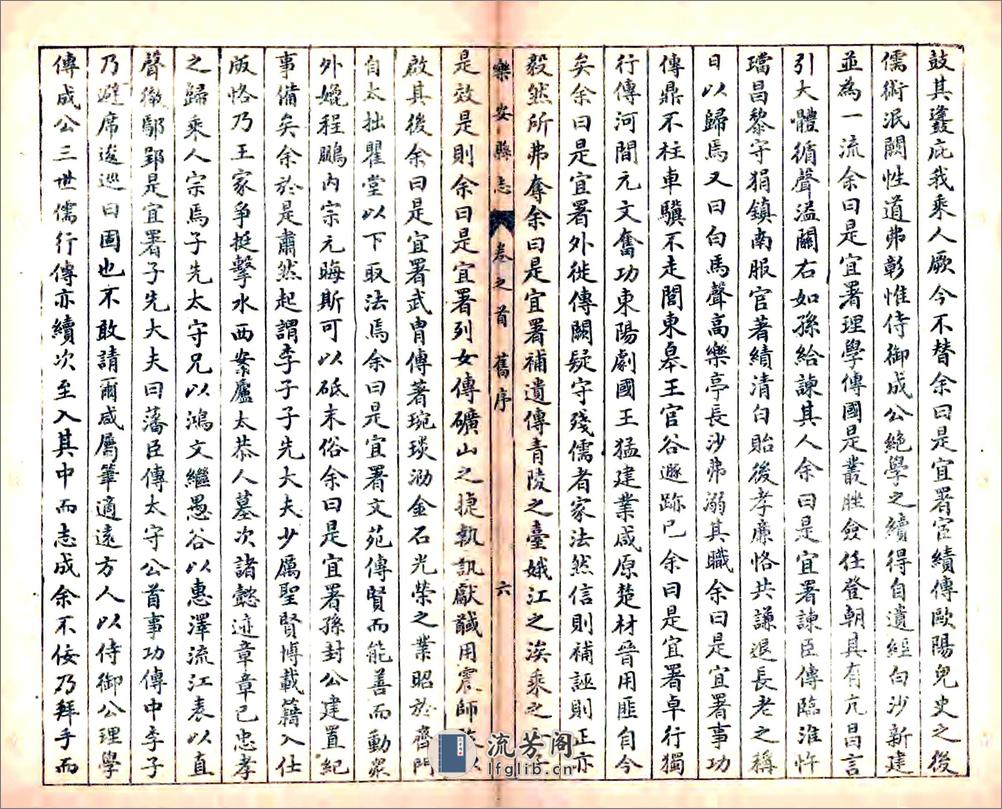 鼓其鼛庇我乘人厥今不替余曰是宜署宦績傳歐陽兒史之後
儒術泯闕性道弗彰惟侍御成公絶學之續得自遺經白沙新建
並為一流余曰是宜署理學傳國是叢脞僉任登朝具有亢昌言
引大體循聲溢關右如孫給諫其人余曰是宜署諫臣傳臨淮忤
璫昌黎守狷鎮南服官著績清白貽後孝廉恪共謙退長老之稱
日以歸馬又曰白馬聲高樂亭長沙弗溺其職余曰是宜署事功
傳鼎不柱車驥不走閭東皋王官谷遯跡已余曰是宜署卓行獨
行傳河間元文奮功東陽劇國王猛建業咸原楚材晉用匪自今
矣余曰是宜署外徙傳闕疑守殘儒者家法然信則補誣則正亦
毅然所弗奪余曰是宜署補遺傳青陵之臺娥江之涘乘之
樂安縣志
卷之首 舊序
六
是效是則余曰是宜署列女傳礦山之捷執訊獻馘用震師
啟其後余曰是宜署武胄傳著琬琰泐金石光榮之業昭於齊門
自太拙瞿堂以下取法焉余曰是宜署文苑傳賢而能善而動眾
外嬔程鵬內宗元晦斯可以砥末俗余曰是宜署孫封公建置紀
事備矣余於是肅然起謂李子子先大夫少厲聖賢博載籍入仕
版恪乃王家爭挺擊水西案廬太恭人墓次諸懿迹章章已忠孝
之歸乘人宗焉子先太守兄以鴻文繼愚谷以惠澤流江表以直
聲徹鄢郢是宜署子先大夫曰藩臣傳太守公首事功傳中李子
乃避席逡巡曰固也不敢請爾咸屬筆適遠方人以侍御公理學
傳成公三世儒行傳亦續次至入其中而志成余不佞乃拜手而
流芳阁
lfglib.cn